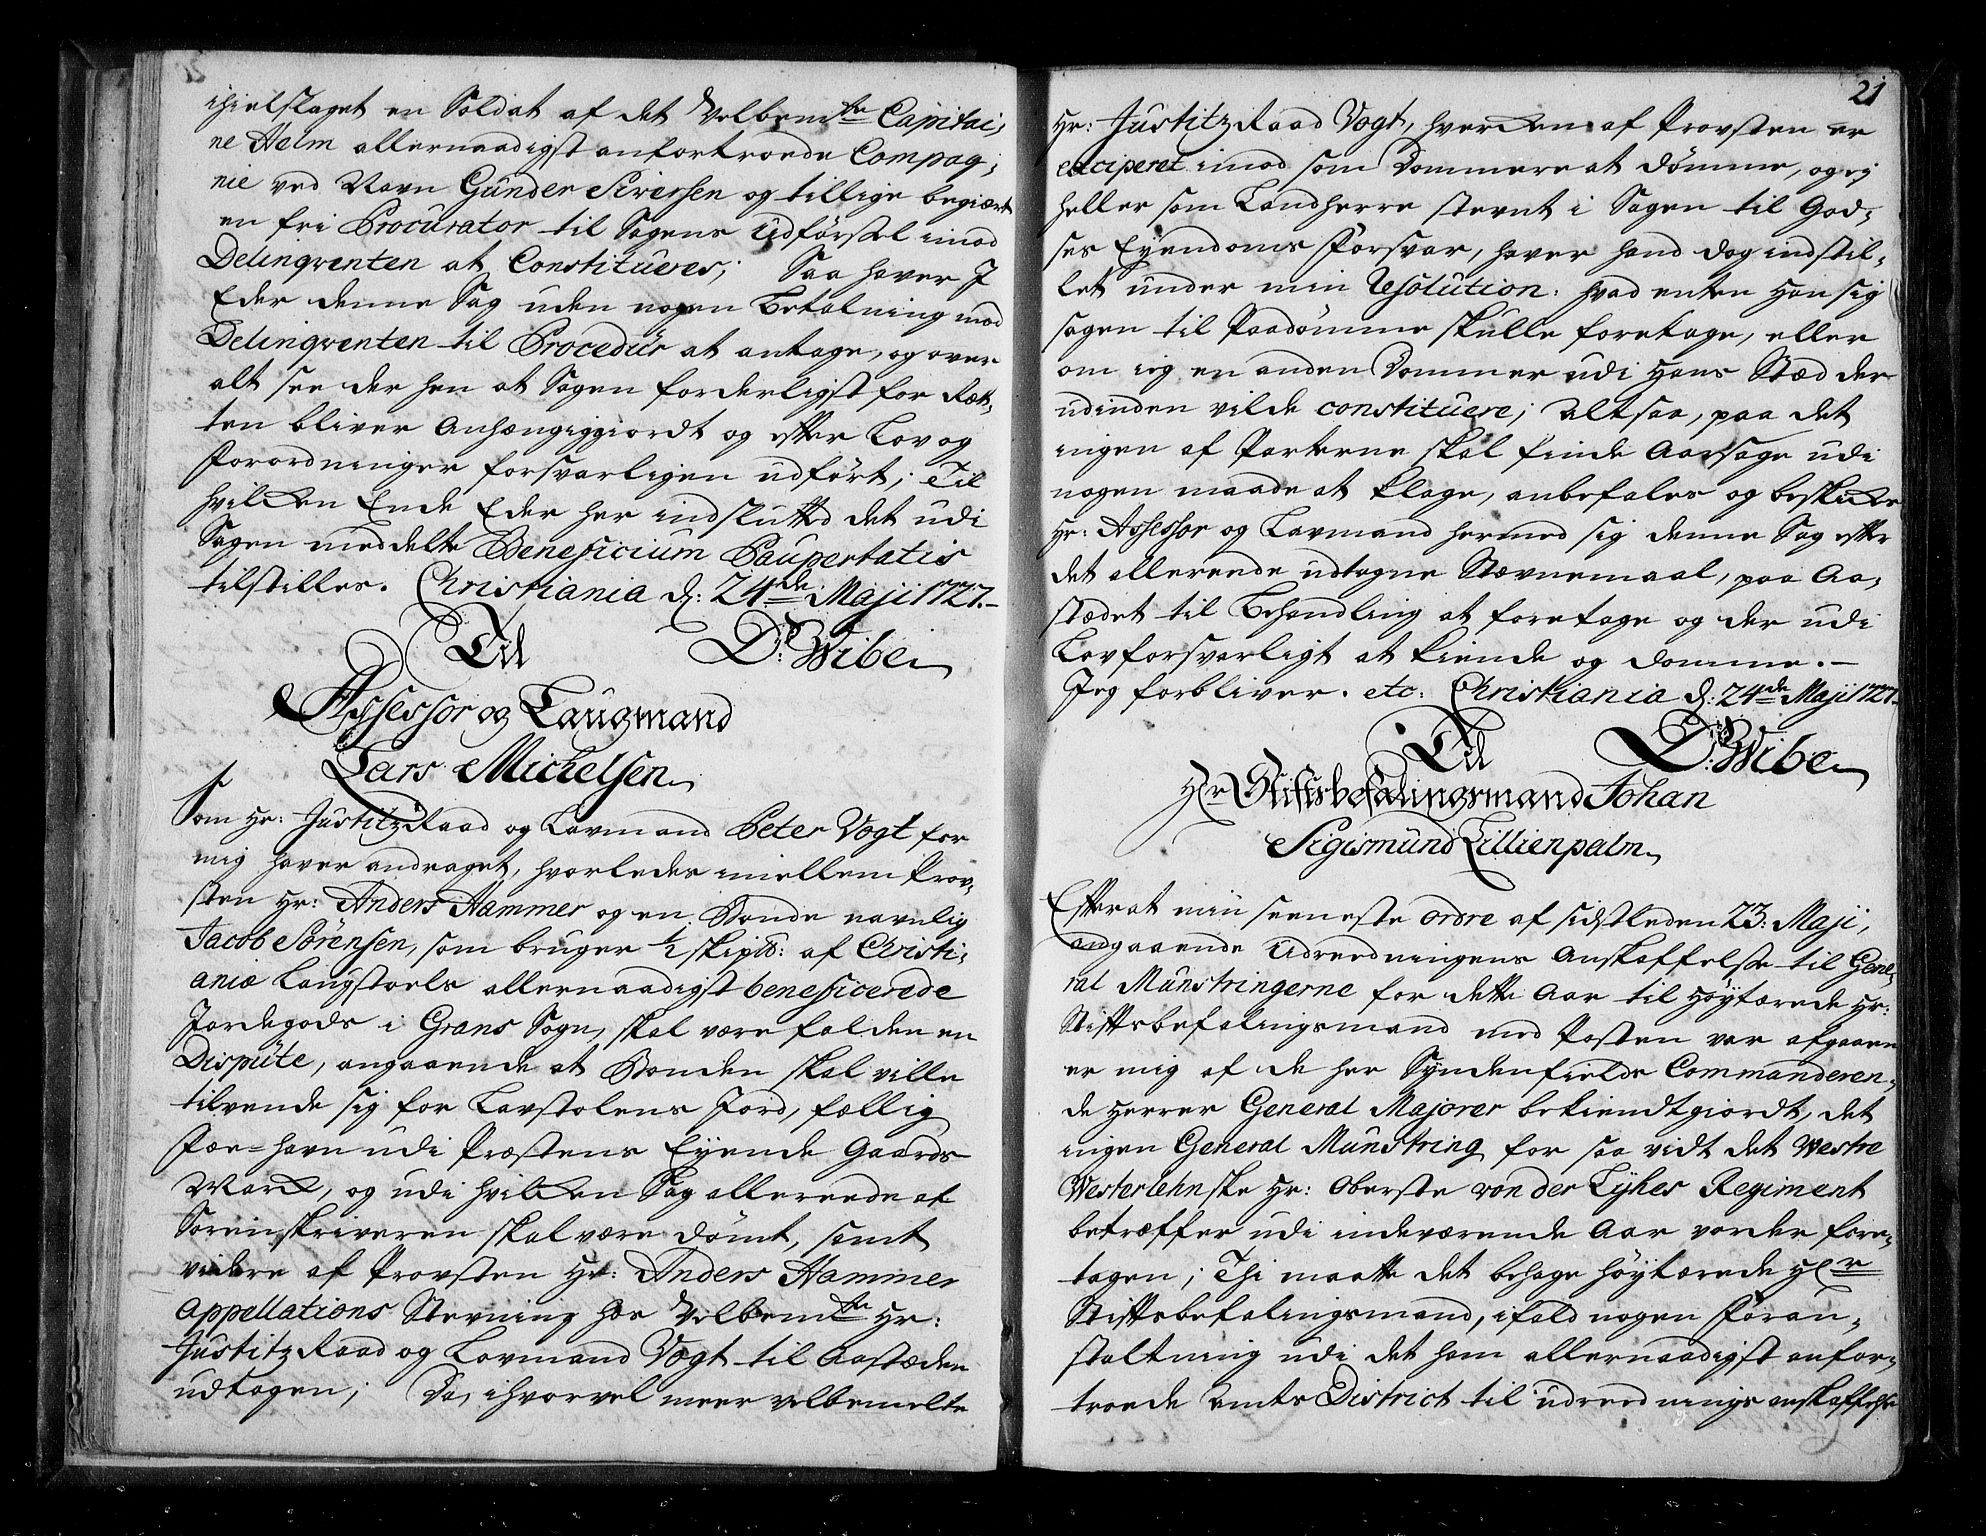 ihielslaget en Soldat af det Velbem.te Capitai,
ne Helm allernaadigst anfortroede Compag,
nie ved Navn Gunder Siversen og tillige begiært
en fri Procurator til Sagens Udførsel imod
Delinqventen at Constitueres; Saa haver I
Eder denne Sag uden nogen Betalning mod
Delinqventen til Procedur at antage, og over
alt see der hen at Sagen forderligst for Ræt,
ten bliver Anhængiggiordt og efter Lov og
Forordninger forsvarligen udført; Til
hvilken Ende Eder her indslutted det udi
Sagen meddelte Beneficium Paupertatis
tilstilles. Christiania d: 24de Maji 1727.
D: Wibe
Til
Assessor og Laugmand
Lars Michelsen
Som Hr: Justitz Raad og Lavmand Peter Vogt for
mig haver andraget, hvorledes imellem Prov,
sten Hr: Anders Hammer og en Bonde navnlig
Jacob Sørensen, som bruger 1/2 skipd: af Christi,
aniæ Laugstoels allernaadigst beneficerede
Jordegods i Grans Sogn, skal være falden en
Dispute, angaaende at Bonden skal ville
tilvende sig for Lavstolens Jord, fællig
Fæe-havn udi Præstens Eyende Gaards
Mark, og udi hvilken Sag allereede af
Sorenskriveren skal være dømt, samt
videre af Provsten Hr: Anders Hammer
Appellations Stevning hos Velbem.te Hr:
Justitz Raad og Lavmand Vogt til Aastæden
udtagen; Da, ihvorvel meer velbemelte
21
Hr: Justitz Raad Vogt, hverken af Provsten er
exciperet imod som Dommere at dømme, og ej
heller som Landherre stevnt i Sagen til God,
ses Eyendoms Forsvar, haver hand dog indstil,
let under min Resolution: hvad enten Han sig
sagen til Paadømme skulle foretage, eller
om jeg en anden Dommer udi Hans Stæd der
udinden vilde constituere; Altsaa, paa det
ingen af Parterne skal finde Aarsage udi
nogen maade at klage, anbefales og beskikkes
Hr: Assessor og Lavmand hermed sig denne Sag efter
det allereede udtagne Stævnemaal, paa Aa,
stædet til Behandling at foretage og der udi
Lovforsvarligt at kiende og domme.
Jeg forbliver. etc: Christiania d: 24de Maji 1727.
D: Wibe
Til
Hr Stiftsbefalingsmand Johan
Sigismund Lillienpalm
Efter at min seeneste ordre af sidstleden 23: Maji,
angaaende Udreedningens Anskaffelse til Gene,
ral Munstringerne for dette Aar til Høytærede Hr:
Stiftsbefalingsmand med Posten var afgaaen
er mig af de her Syndenfields Commanderen,
de Herrer General Majorer bekiendtgiordt, det
ingen General Munstring for saa vidt det Westre
Westerlehnske Hr: Oberste von der Lykes Regiment
betræffer udi indeværende Aar vorder fore,
tagen; Thi maatte det behage høytærede Hr
Stiftsbefalingsmand, ifald nogen Foran,
staltning udi det ham allernaadigst anfor,
troede Amts District til udreednings anskaffelse